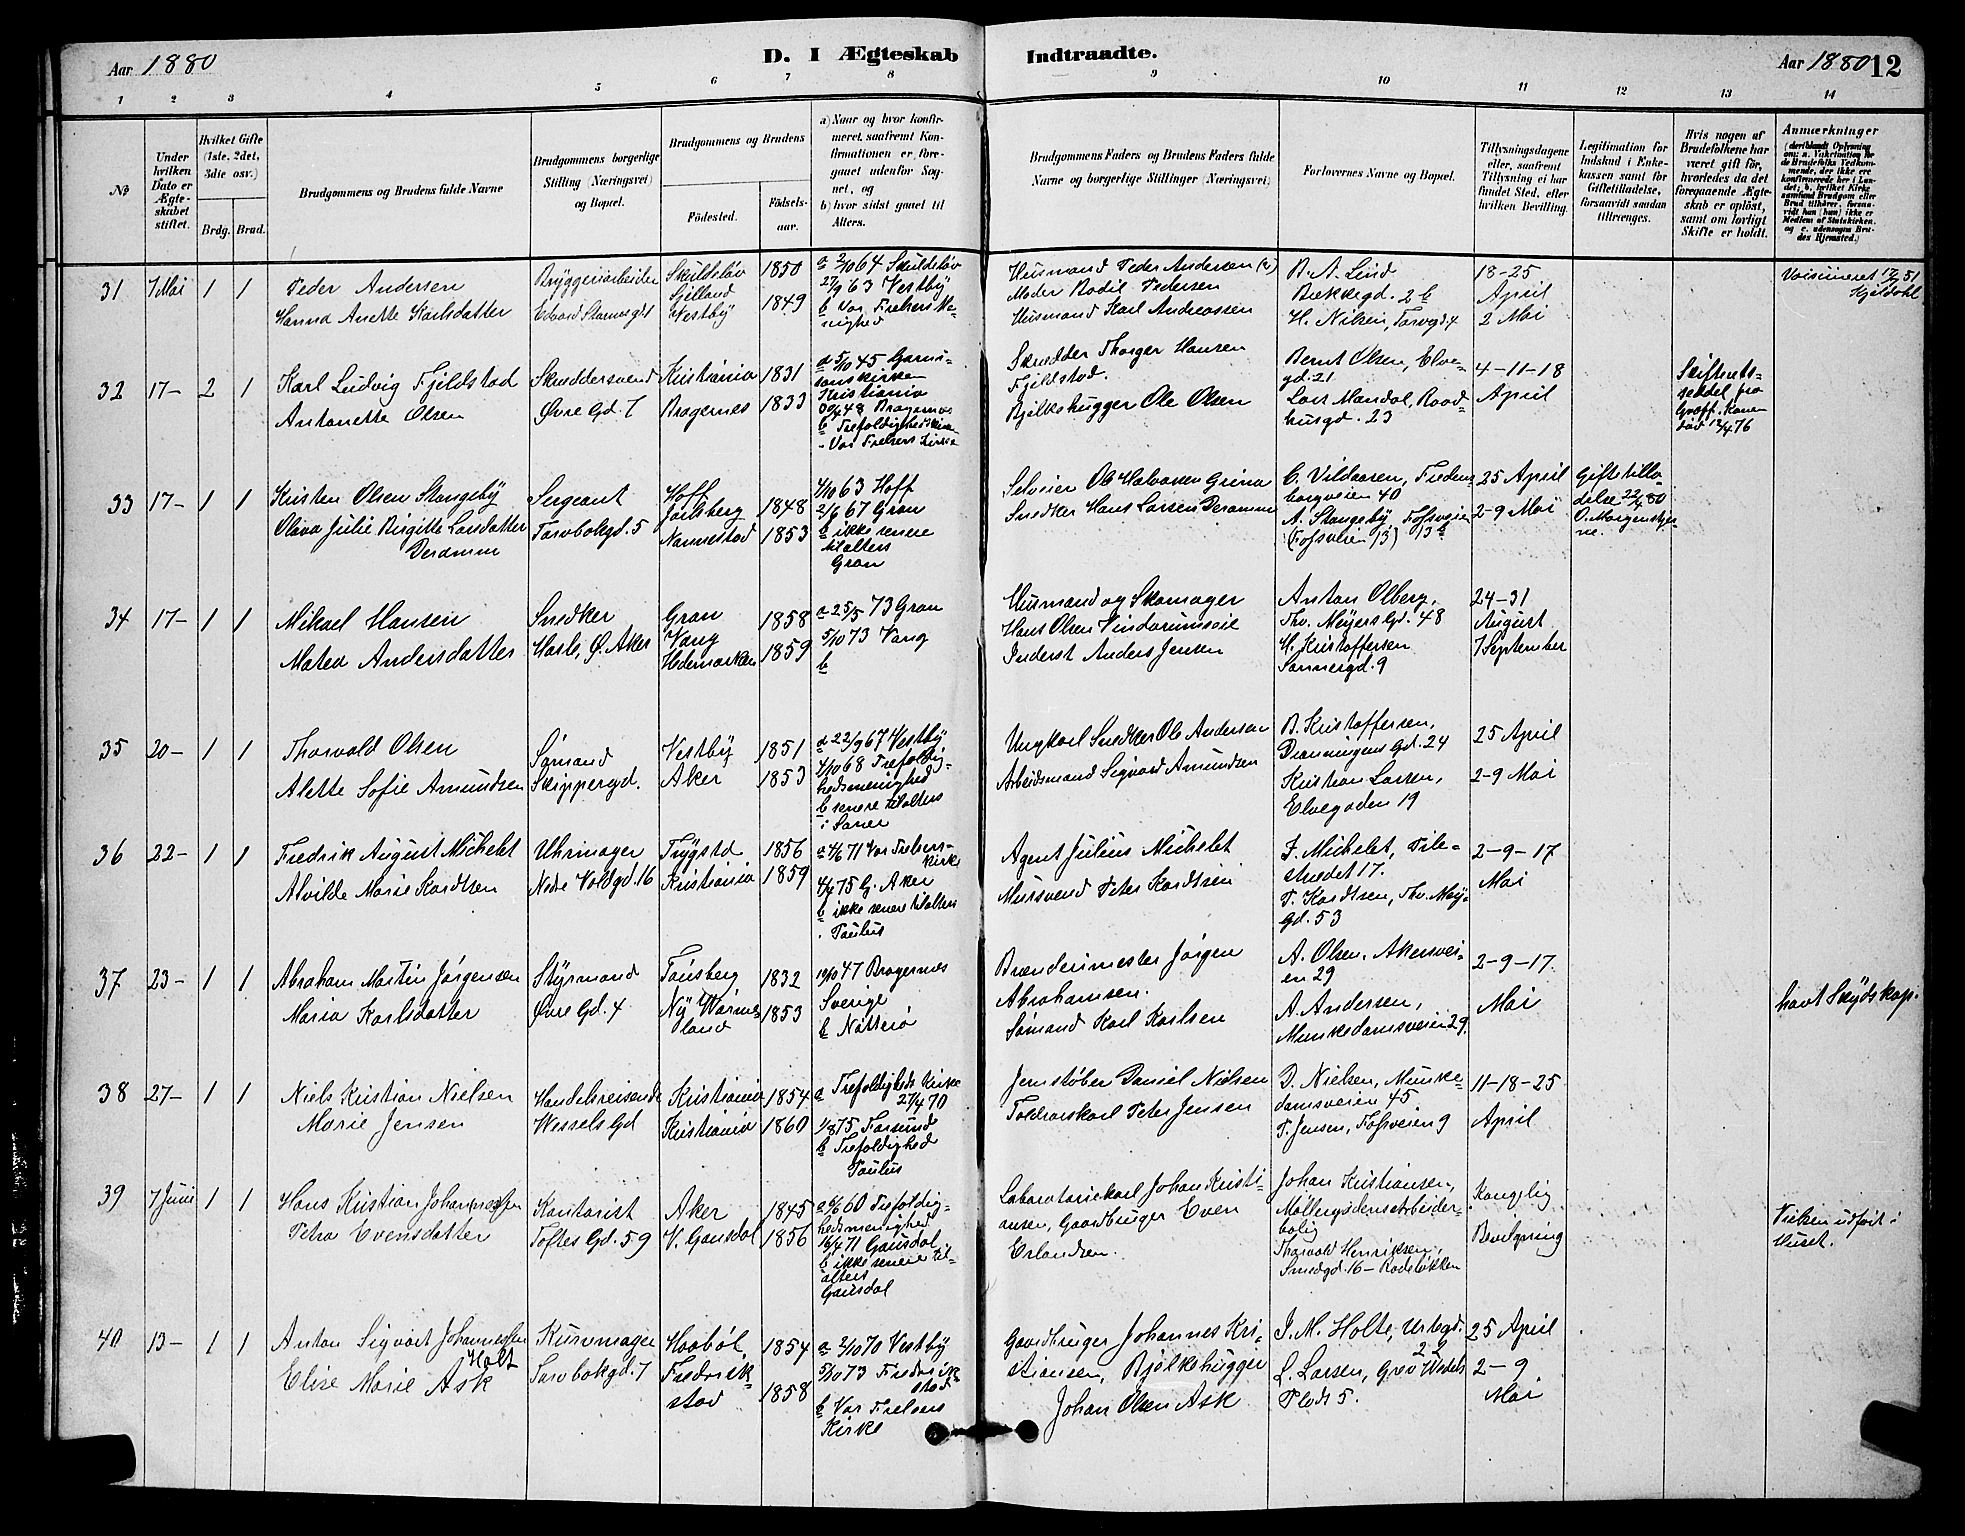 Aar 1880
D. I Ægteskab Indtraadte.
Aar 1880 12
1 2 3 4 5 6 7 8 9 10 11 12 13 14
No
Under hvilken Dato er Ægteskabet stiftet.
Hvilket Gifte (1ste, 2det, 3die osv.)
Brdg. Brud.
Brudgommens og Brudens fulde Navne
Brudgommens borgerlige Stilling (Næringsvei) og Bopæl.
Brudgommens og Brudens
Fødested.
Fødselsaar.
a) Naar og hvor konfirmeret, saafremt Konfirmationen er foregaaet udenfor Sognet, og
b) hvor sidst gaaet til Alters.
Brudgommens Faders og Brudens Faders fulde Navne og borgerlige Stillinger (Næringsvei)
Forlovernes Navne og Bopæl.
Tillysningsdagene eller, saafremt Tillysning ei har fundet Sted, efter hvilken Bevilling.
Legitimation for Indskud i Enkekassen samt for Giftetilladelse, forsaavidt saadan tiltrænges.
Hvis nogen af Brudefolkene har været gift før, hvorledes da det foregaaende Ægteskab er opløst, samt om lovligt Skifte er holdt.
Anmærkninger
31 7 Mai 1 1
Peder Andersen
Hanna Anette Karlsdatter
Bryggeriarbeider
Edvard Stormsgd
Skuldeløv
Sjelland
Vestby
1850
1849
a 2/10 64 Skuldeløv
27/9 63 Vestby
b Vor Frelsers Me-
nighed
Husmand Peder Andersen
Moder Bodil Pedersen
Husmand Karl Andreassen
B. A. Lind
Bækkegd. 2 b
H. Nilsen, Torvgd 4
18-25
April
2 Mai
Kjeldahl
32 17- 2 1
Karl Ludvig Fjeldstad
Antonette Olsen
Skræddersvend
Øvre Gd. 7
Kristiania
Bragernes
1831
1833
a 5/10 45 Garni-
sonskirken
Kristiania
48 Bragernes
b Trefoldighedskirken
- Vor Frelsers Kirke
Skrædder Thorger Hansen
Fjeldstad.
Bjelkehugger Ole Olsen
Bernt Olsen, Elve-
gd. 21
Lars Mandal, Raad-
husgd. 23
4-11-18
April
Skifterets-
seddel fra
død 12/4 76
33 17- 1 1
Kristen Olsen Stangeby
Olava Julie Birgitte Larsdatter
Deramm
Sergeant
Torvbakgd. 5
Hoff
Jarlsberg
Nannestad
1848
1853
4/10 63 Hoff
2/6 67 Gran
b ikke senere
til alters
Gran
Selveier Ole Halvorsen Grina
Snedker Hans Larsen Deramm
C. Vildaasen, Fredens-
borgveien 40
A. Stangeby, Fossveien
(Fossveien 13) 13b
25 April
2-9 Mai
Giftetilla-
delse 22/4 80
O. Morgenstjer-
ne.
34 17- 1 1
Mikael Hansen
Matea Andersdatter
Snedker
Hasle, Ø. Aker
Gran
Vang
Hedemarken
1858
1859
a 25/5 73 Gran
5/10 73 Vang
b
Husmand og Skomager
Hans Olsen Vindorumseie
Inderst Anders Jensen
Anton Olberg,
Thv. Meyers Gd. 48
H. Kristoffersen
Sannergd. 9
24-31
August
7 September
35 20- 1 1
Thorvald Olsen
Alette Sofie Amundsen
Sømand
Skippergd.
Vestby
Aker
1851
1853
a 22/9 67 Vestby
4/10 68 Trefoldig-
hedsmenighed
b senere til alters
i Saner
Ungkarl Snedker Ole Andersen
Arbeidsmand Sigvard Amundsen
B. Kristoffersen,
Dronningens Gd. 24
Kristian Larsen,
Elvegaden 19
25 April
2-9 Mai
36 22- 1 1
Fredrik August Michelet
Alvilde Marie Kordtsen
Uhrmager
Nedre Voldgd. 16
Trygstad
Kristiania
1856
1859
a 4/6 71 Vor Frelsers-
kirke
4/4 75 G. Aker
b ikke senere til alters
. Paulus
Agent Julius Michelet
Mursvend Peter Kordtsen
J. Michelet, Pile-
strædet 17.
P. Kordtsen, Thv. Mey.
Gd. 53
2-9-17
Mai
37 23- 1 1
Abraham Martin Jørgensen
Maria Karlsdatter
Styrmand
Øvre Gd. 4
Tønsberg
Ny Wärme-
land
1832
1853
10/10 47 Bragernes
Sverige
b Nøtterø
Brænderimester Jørgen
Abrahamsen.
Sømand Karl Karlsen
A. Olsen, Akersvei-
en 29
A. Andersen,
Munkedamsveien 29
2-9-17
Mai
38 27- 1 1
Niels Kristian Nielsen
Marie Jensen
Handelsreisende
Wessels Gd
Kristiania
Kristiania
1854
1860
a Trefoldigheds Kirke
27/4 70
1/8 75 Farsund
b Trefoldighed
Paulus
Jernstøber Daniel Nielsen
Toldrorskarl Peter Jensen
D. Nielsen, Munke-
damsveien 45
P. Jensen, Fossveien 9
11-18-25
April
39 7 Juni 1 1
Hans Kristian Johannessen
Petra Evensdatter
Kontorist
Toftes Gd. 59
Aker
V. Gausdal
1845
1856
60 Trefoldig-
hedsmenighed
16/4 71 Gausdal
b ikke senere til-
alters
Gausdal
Laboratoriekarl Johan Kristi-
ansen, Gaardbruger Even
Erlandsen.
Johan Kristiansen,
bolig
Thorvald Henriksen,
Smedgd. 16 - Rodeløkken
Kongelig
Bevilgning
Vielsen udført i
Huset.
40 13- 1 1
Anton Sigvart Johannessen
Holt
Elise Marie Ask
Kurvmager
Torvbakgd. 7
Haabøl,
Fredrik-
stad
1854
1858
a 2/10 70 Vestby
5/10 73 Fredrik-
stad
b Vor Frelsers
Kirke
Gaardbruger Johannes Kri-
stiansen, Bjelkehugger
Johan Olsen Ask
J. M. Holte, Urtegd.
22
L. Larsen, Grev Wedels
Plads 5.
25 April
2-9
Mai